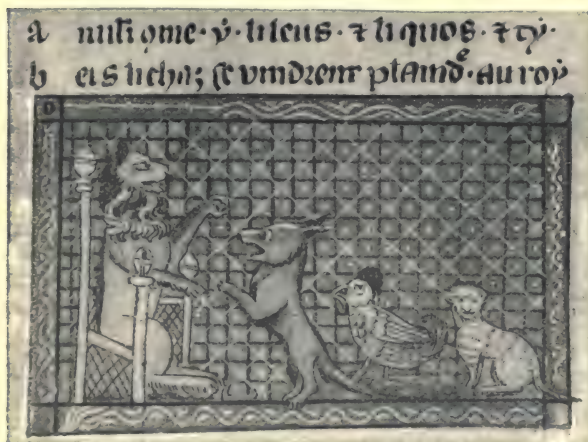 a insi ꝯme · y · li leus · ⁊ li quos · ⁊ ty ·
b ers li chaꝫ se vindrent plaindͤ · au roy